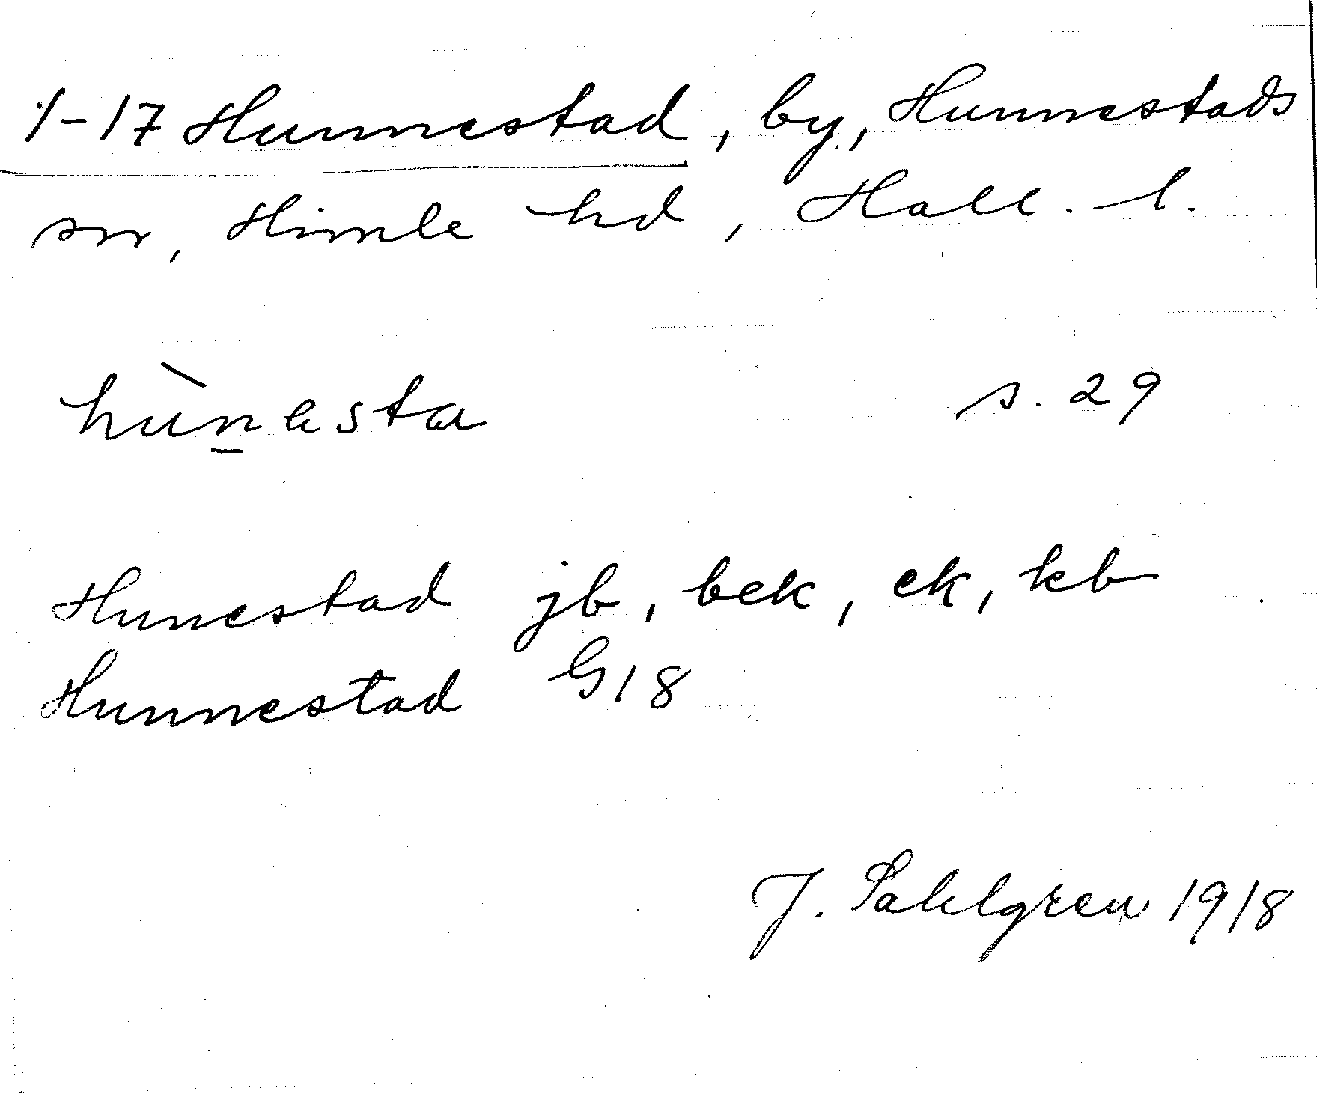 1-17 Hunnestad, by, Hunnestads
sn, Himle hd, Hall. l.
hùn̲esta s. 29
Hunestad jb, bek, ek, kb
Hunnestad G18
J. Sahlgren 1918